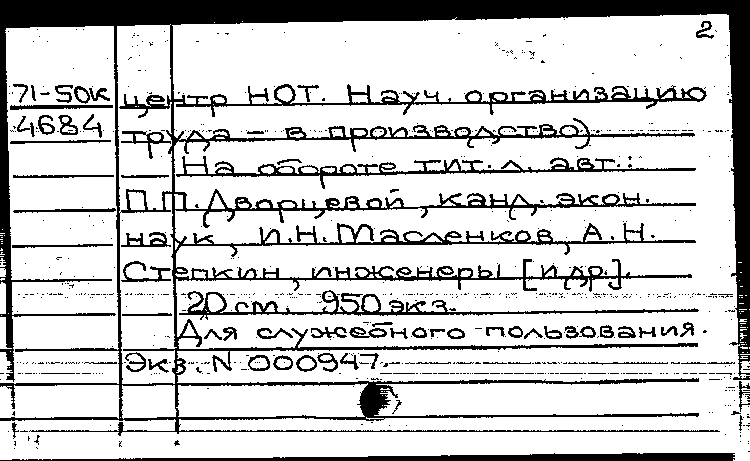 2
71-50к центр НОТ. Науч. организацию
4684 труда – в производство).
На обороте тит. л. авт.:
П.П. Дворцевой, канд. экон.
наук, И.Н. Масленков, А.Н.
Степкин, инженеры [и др.].
20 см. 950 экз.
Для служебного пользования.
Экз. N 000947.